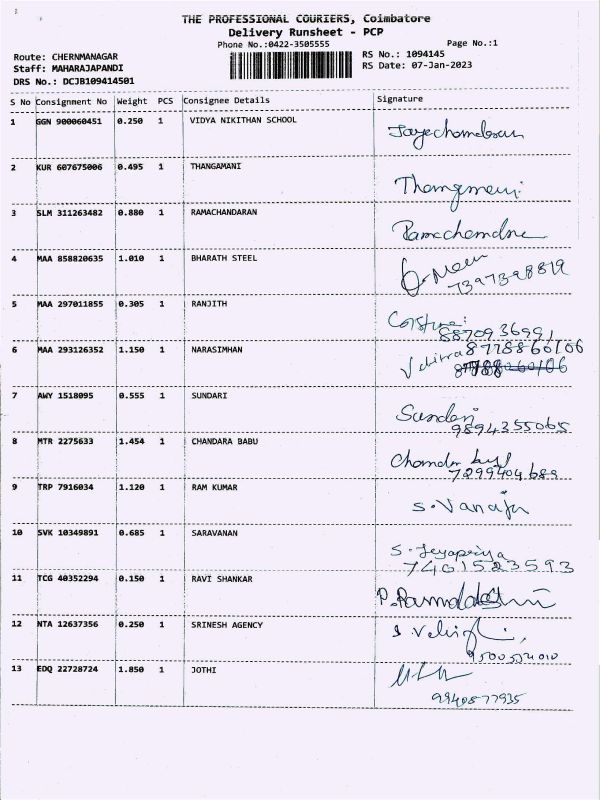 THE PROFESSIONAL COURIERS, Coimbatore
Delivery Runsheet - PCP
Phone No.:0422-3505555
Page No.:1
Route: CHERNMANAGAR
RS No.: 1094145
Staff: MAHARAJAPANDI
RS Date: 07-Jan-2023
DRS No.: DCJB109414501
S No Consignment No Weight PCS Consignee Details Signature
1 GGN 900060451 0.250 1 VIDYA NIKITHAN SCHOOL
2 KUR 607675006 0.495 1 THANGAMANI
Thangmani
3 SLM 311263482 0.880 1 RAMACHANDARAN
4 MAA 858820635 1.010 1 BHARATH STEEL
7397398819
5 MAA 297011855 0.305 1 RANJITH
8870936991
6 MAA 293126352 1.150 1 NARASIMHAN
8778860106
7 AWY 1518095 0.555 1 SUNDARI
Sundari
9894355065
8 MTR 2275633 1.454 1 CHANDARA BABU
7299404689
9 TRP 7916034 1.120 1 RAM KUMAR
S. Vanaja
10 SVK 10349891 0.685 1 SARAVANAN
S. Jeyapriya
7401523593
11 TCG 40352294 0.150 1 RAVI SHANKAR
12 NTA 12637356 0.250 1 SRINESH AGENCY
13 EDQ 22728724 1.850 1 JOTHI
9940877935